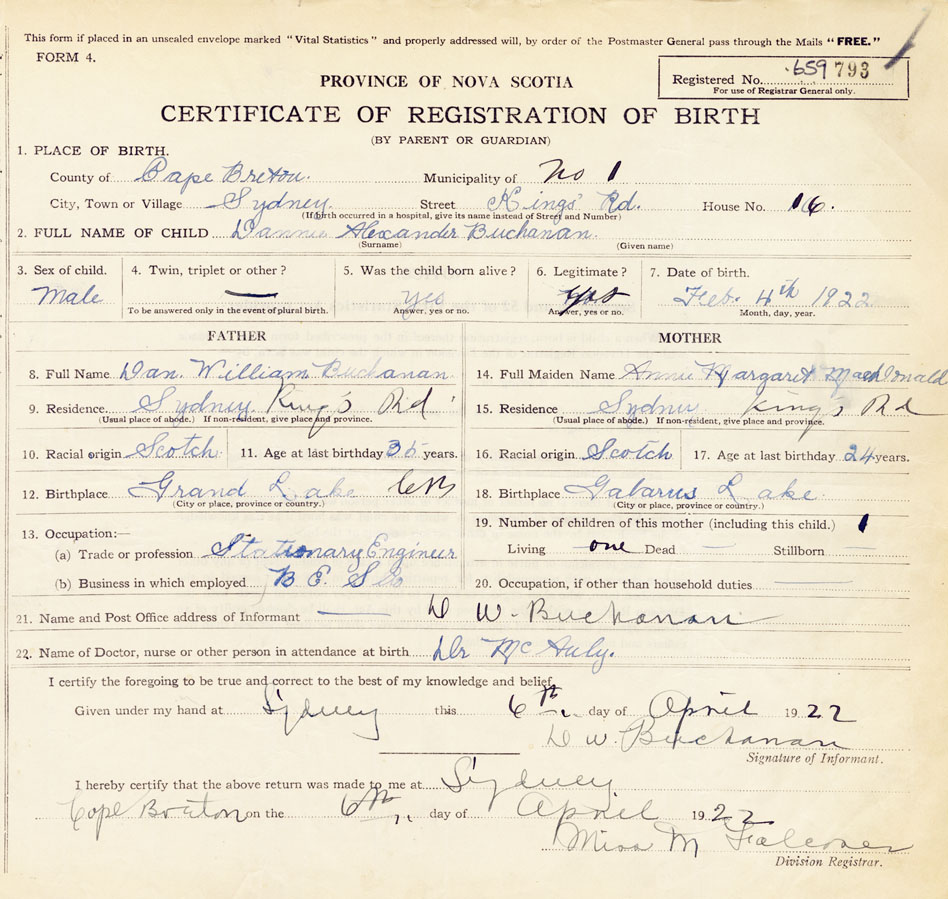 This form if placed in an unsealed envelope marked "Vital Statistics" and properly addressed will, by order of the Postmaster General pass through the Mails "FREE."
FORM 4.
PROVINCE OF NOVA SCOTIA
Registered No. 659 793
For use of Registrar General only.
CERTIFICATE OF REGISTRATION OF BIRTH
(BY PARENT OR GUARDIAN)
1. PLACE OF BIRTH.
County of Cape Breton. Municipality of No 1
City, Town or Village Sydney. Street Kings' Rd. House No. 16.
(If birth occurred in a hospital, give its name instead of Street and Number)
2. FULL NAME OF CHILD Dannie Alexander Buchanan.
(Surname) (Given name)
3. Sex of child. 4. Twin, triplet or other? 5. Was the child born alive? 6. Legitimate? 7. Date of birth.
Male — yes yes Feb. 4th 1922
To be answered only in the event of plural birth. Answer, yes or no. Answer, yes or no. Month, day, year.
FATHER MOTHER
8. Full Name Dan. William Buchanan 14. Full Maiden Name Annie Margaret MacDonald
9. Residence. Sydney King's Rd 15. Residence Sydney King's Rd
(Usual place of abode.) If non-resident, give place and province. (Usual place of abode.) If non-resident, give place and province.
10. Racial origin Scotch 11. Age at last birthday 35 years. 16. Racial origin Scotch 17. Age at last birthday 24 years.
12. Birthplace Grand Lake CB 18. Birthplace Gabarus Lake.
(City or place, province or country.) (City or place, province or country.)
13. Occupation:— 19. Number of children of this mother (including this child.) 1
(a) Trade or profession Stationary Engineer Living one Dead — Stillborn —
(b) Business in which employed B. E. S Co 20. Occupation, if other than household duties —
21. Name and Post Office address of Informant — D W. Buchanan
22. Name of Doctor, nurse or other person in attendance at birth Dr McAuly.
I certify the foregoing to be true and correct to the best of my knowledge and belief.
Given under my hand at Sydney this 6th day of April 1922
D W. Buchanan
Signature of Informant.
I hereby certify that the above return was made to me at Sydney
Cape Breton on the 6th day of April 1922
Miss M Falconer
Division Registrar.